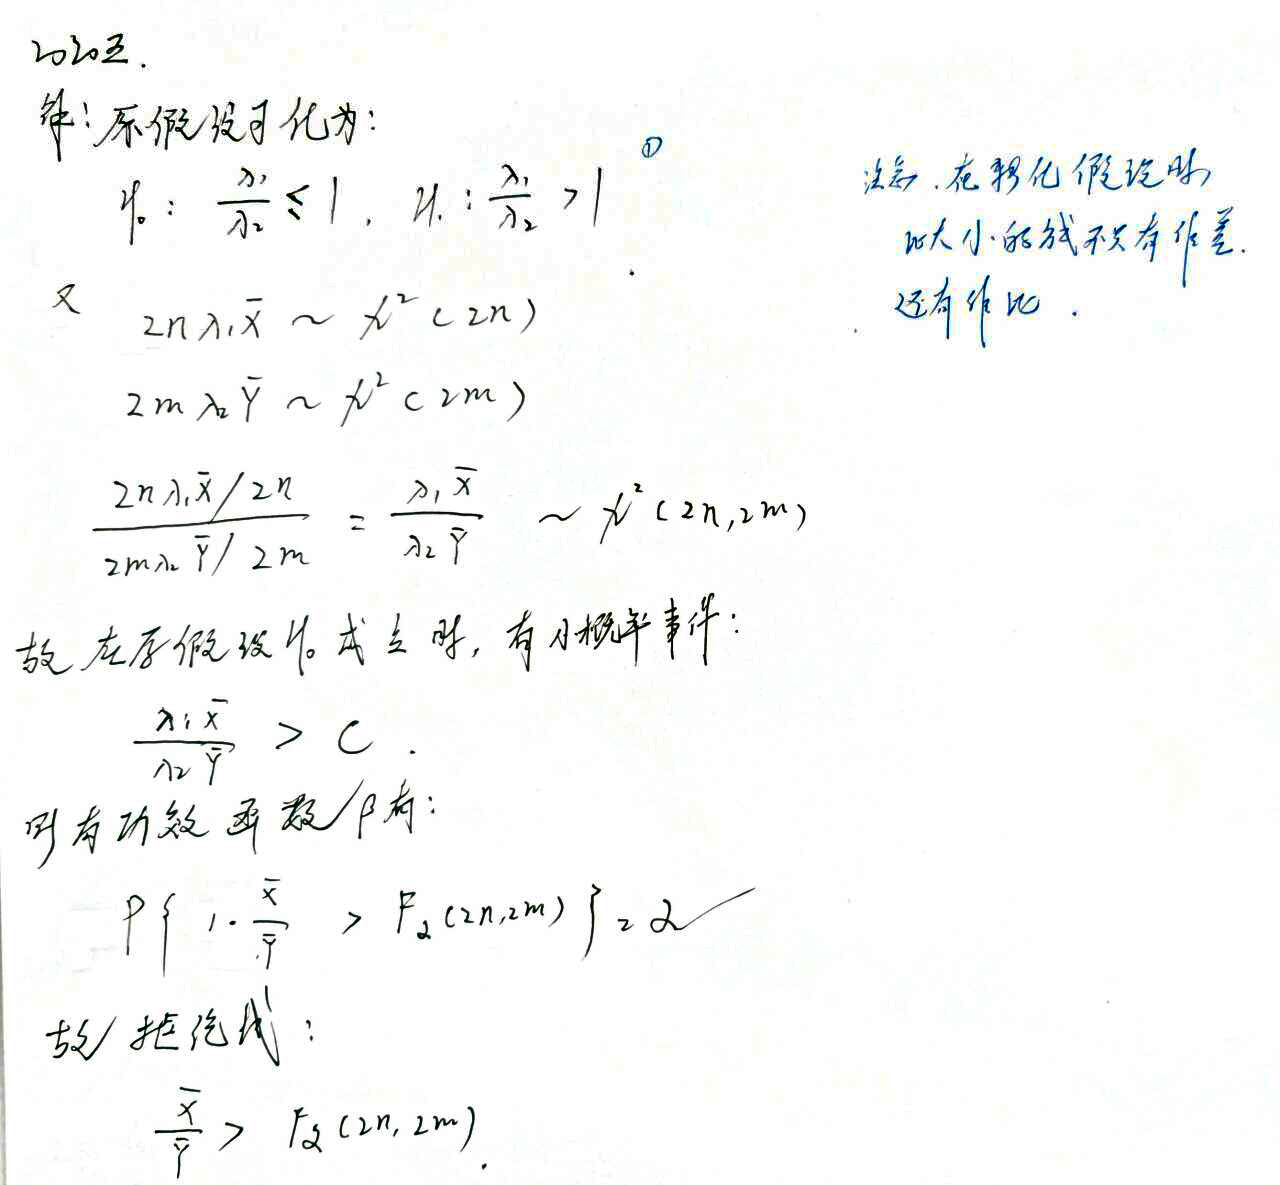 2020五.
解:原假设可化为:
H₀: λ₁/λ₂ ≤ 1, H₁: λ₁/λ₂ > 1 ①
又 2nλ₁X̄ ~ χ²(2n)
2mλ₂Ȳ ~ χ²(2m)
(2nλ₁X̄/2n)/(2mλ₂Ȳ/2m) = λ₁X̄/λ₂Ȳ ~ χ²(2n,2m)
故在原假设H₀成立时,有小概率事件:
λ₁X̄/λ₂Ȳ > C.
则有功效函数β有:
P{1·X̄/Ȳ > F_α(2n,2m)} = α
故拒绝域:
X̄/Ȳ > F_α(2n,2m).
注意.在转化假设时
比大小的方式不只有作差.
还有作比.